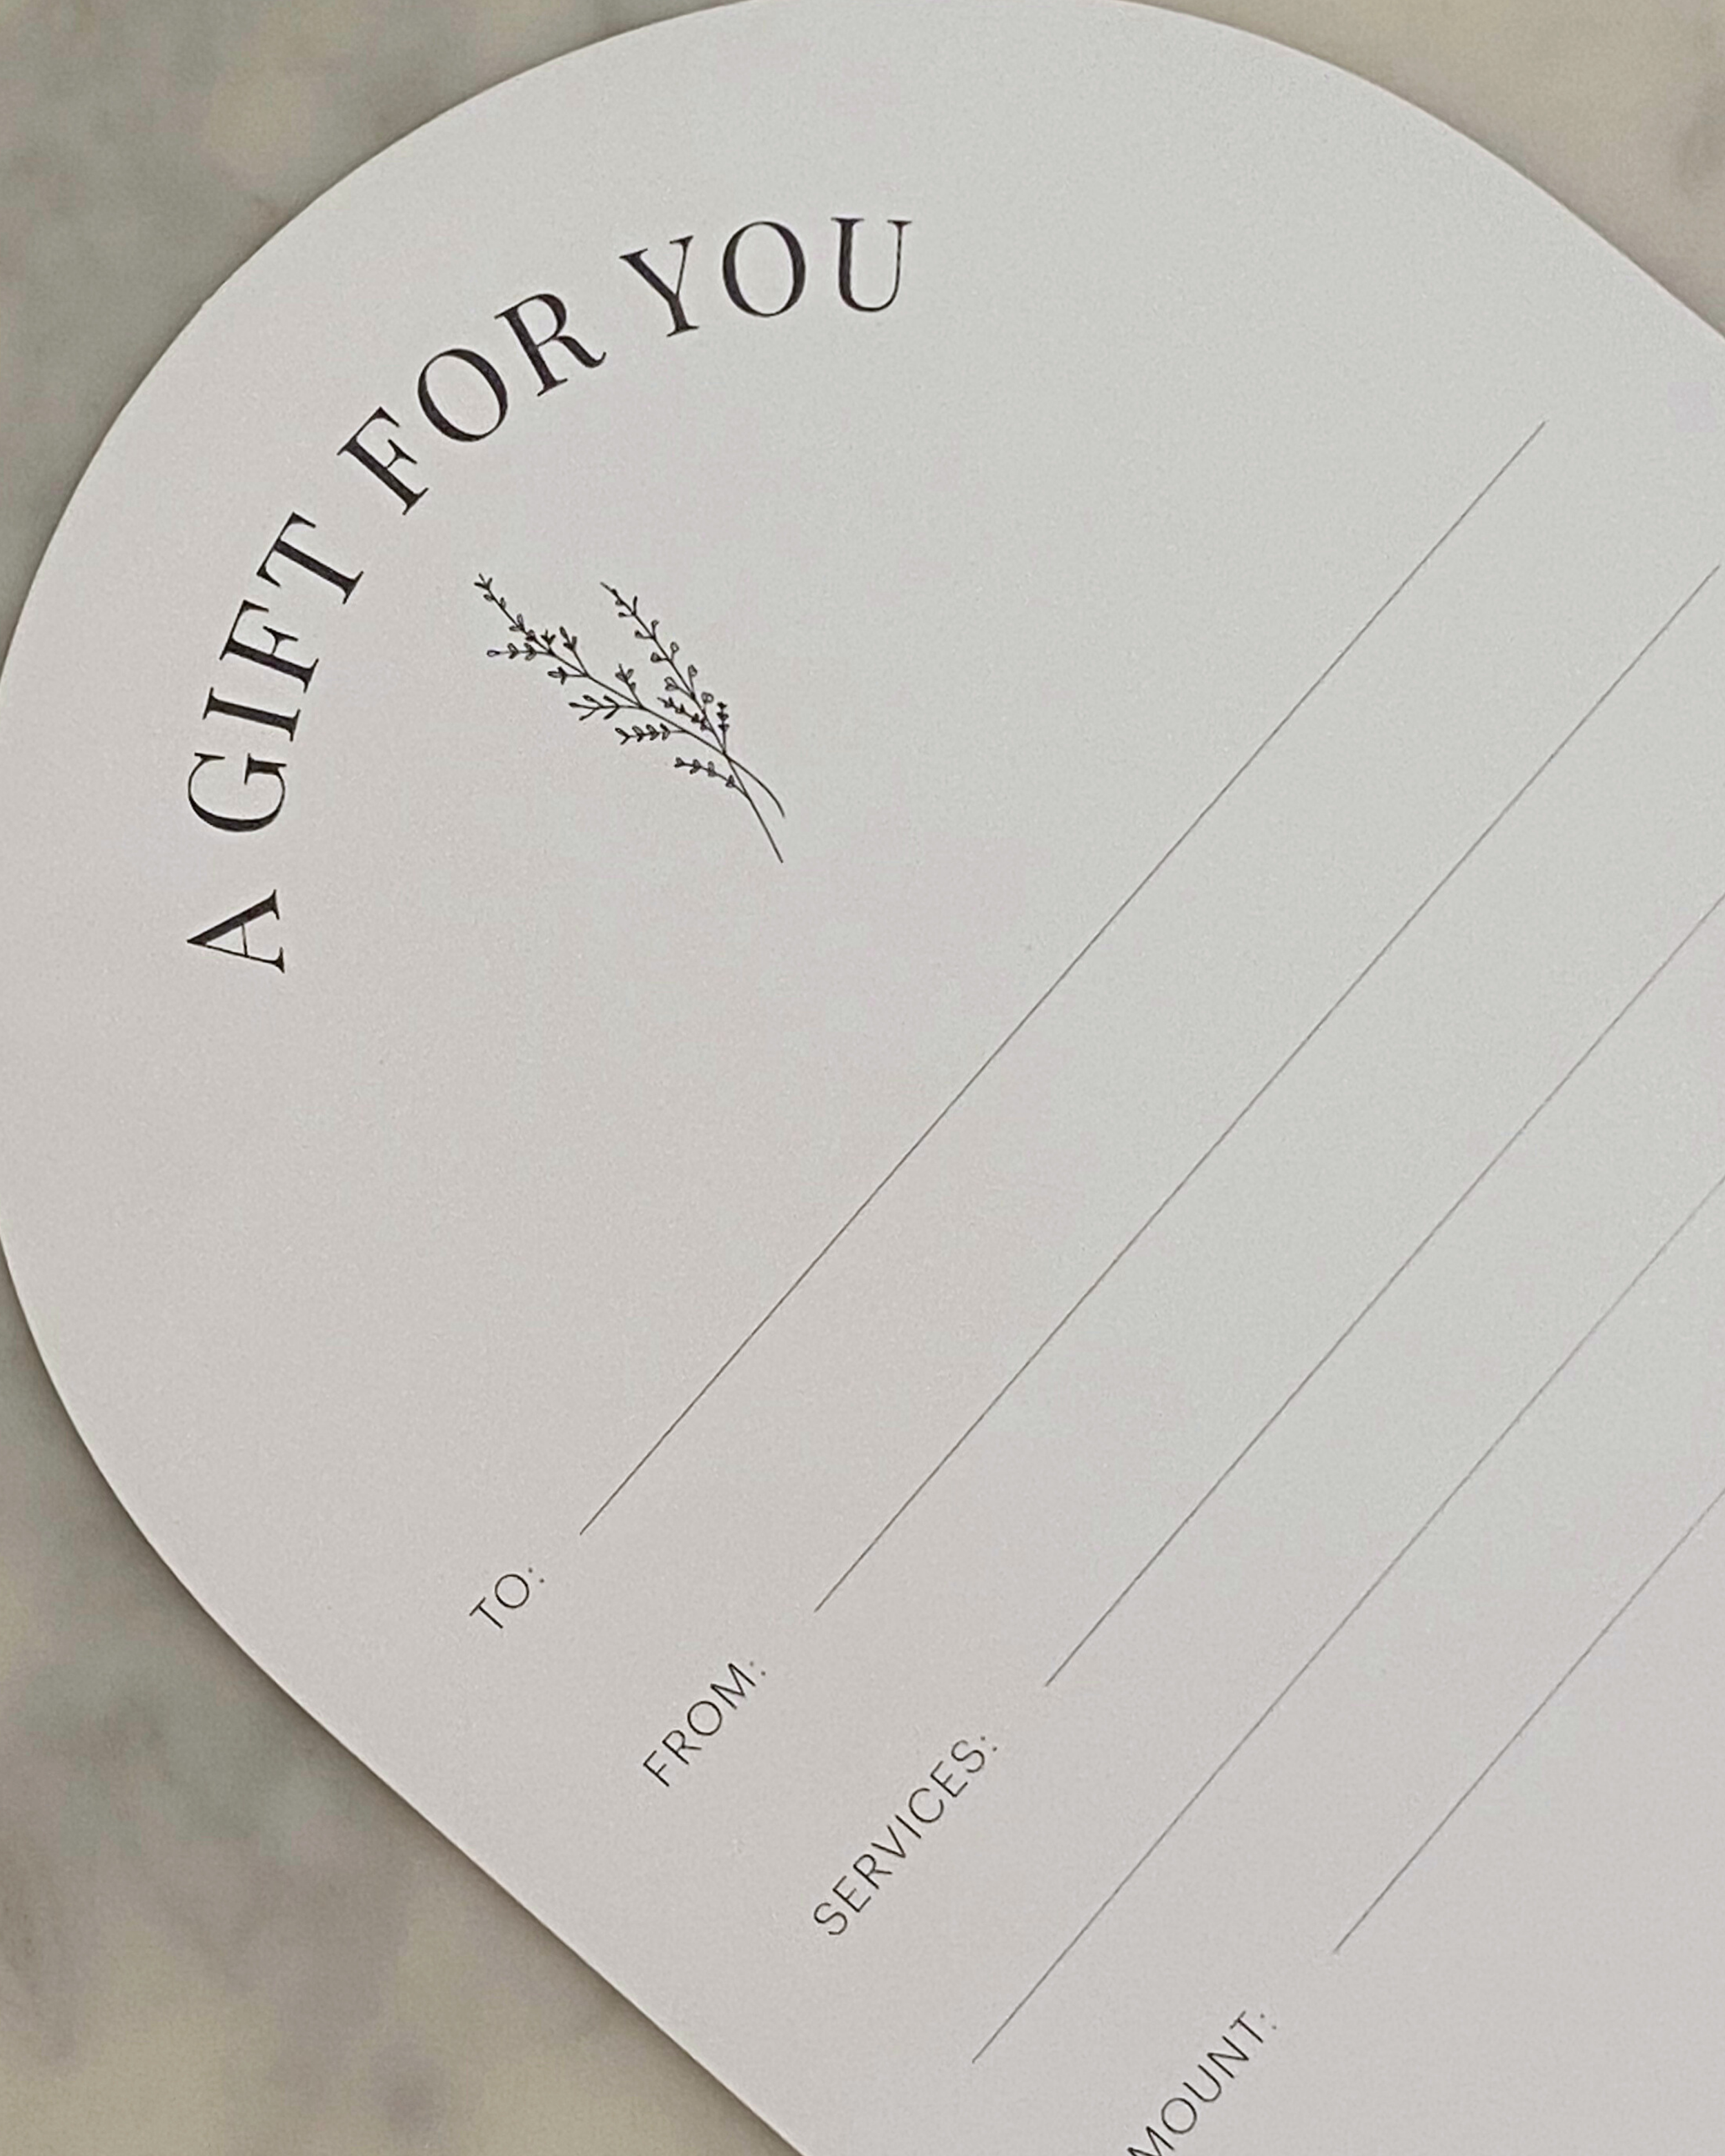 A GIFT FOR YOU
TO:
FROM:
SERVICES:
MOUNT: